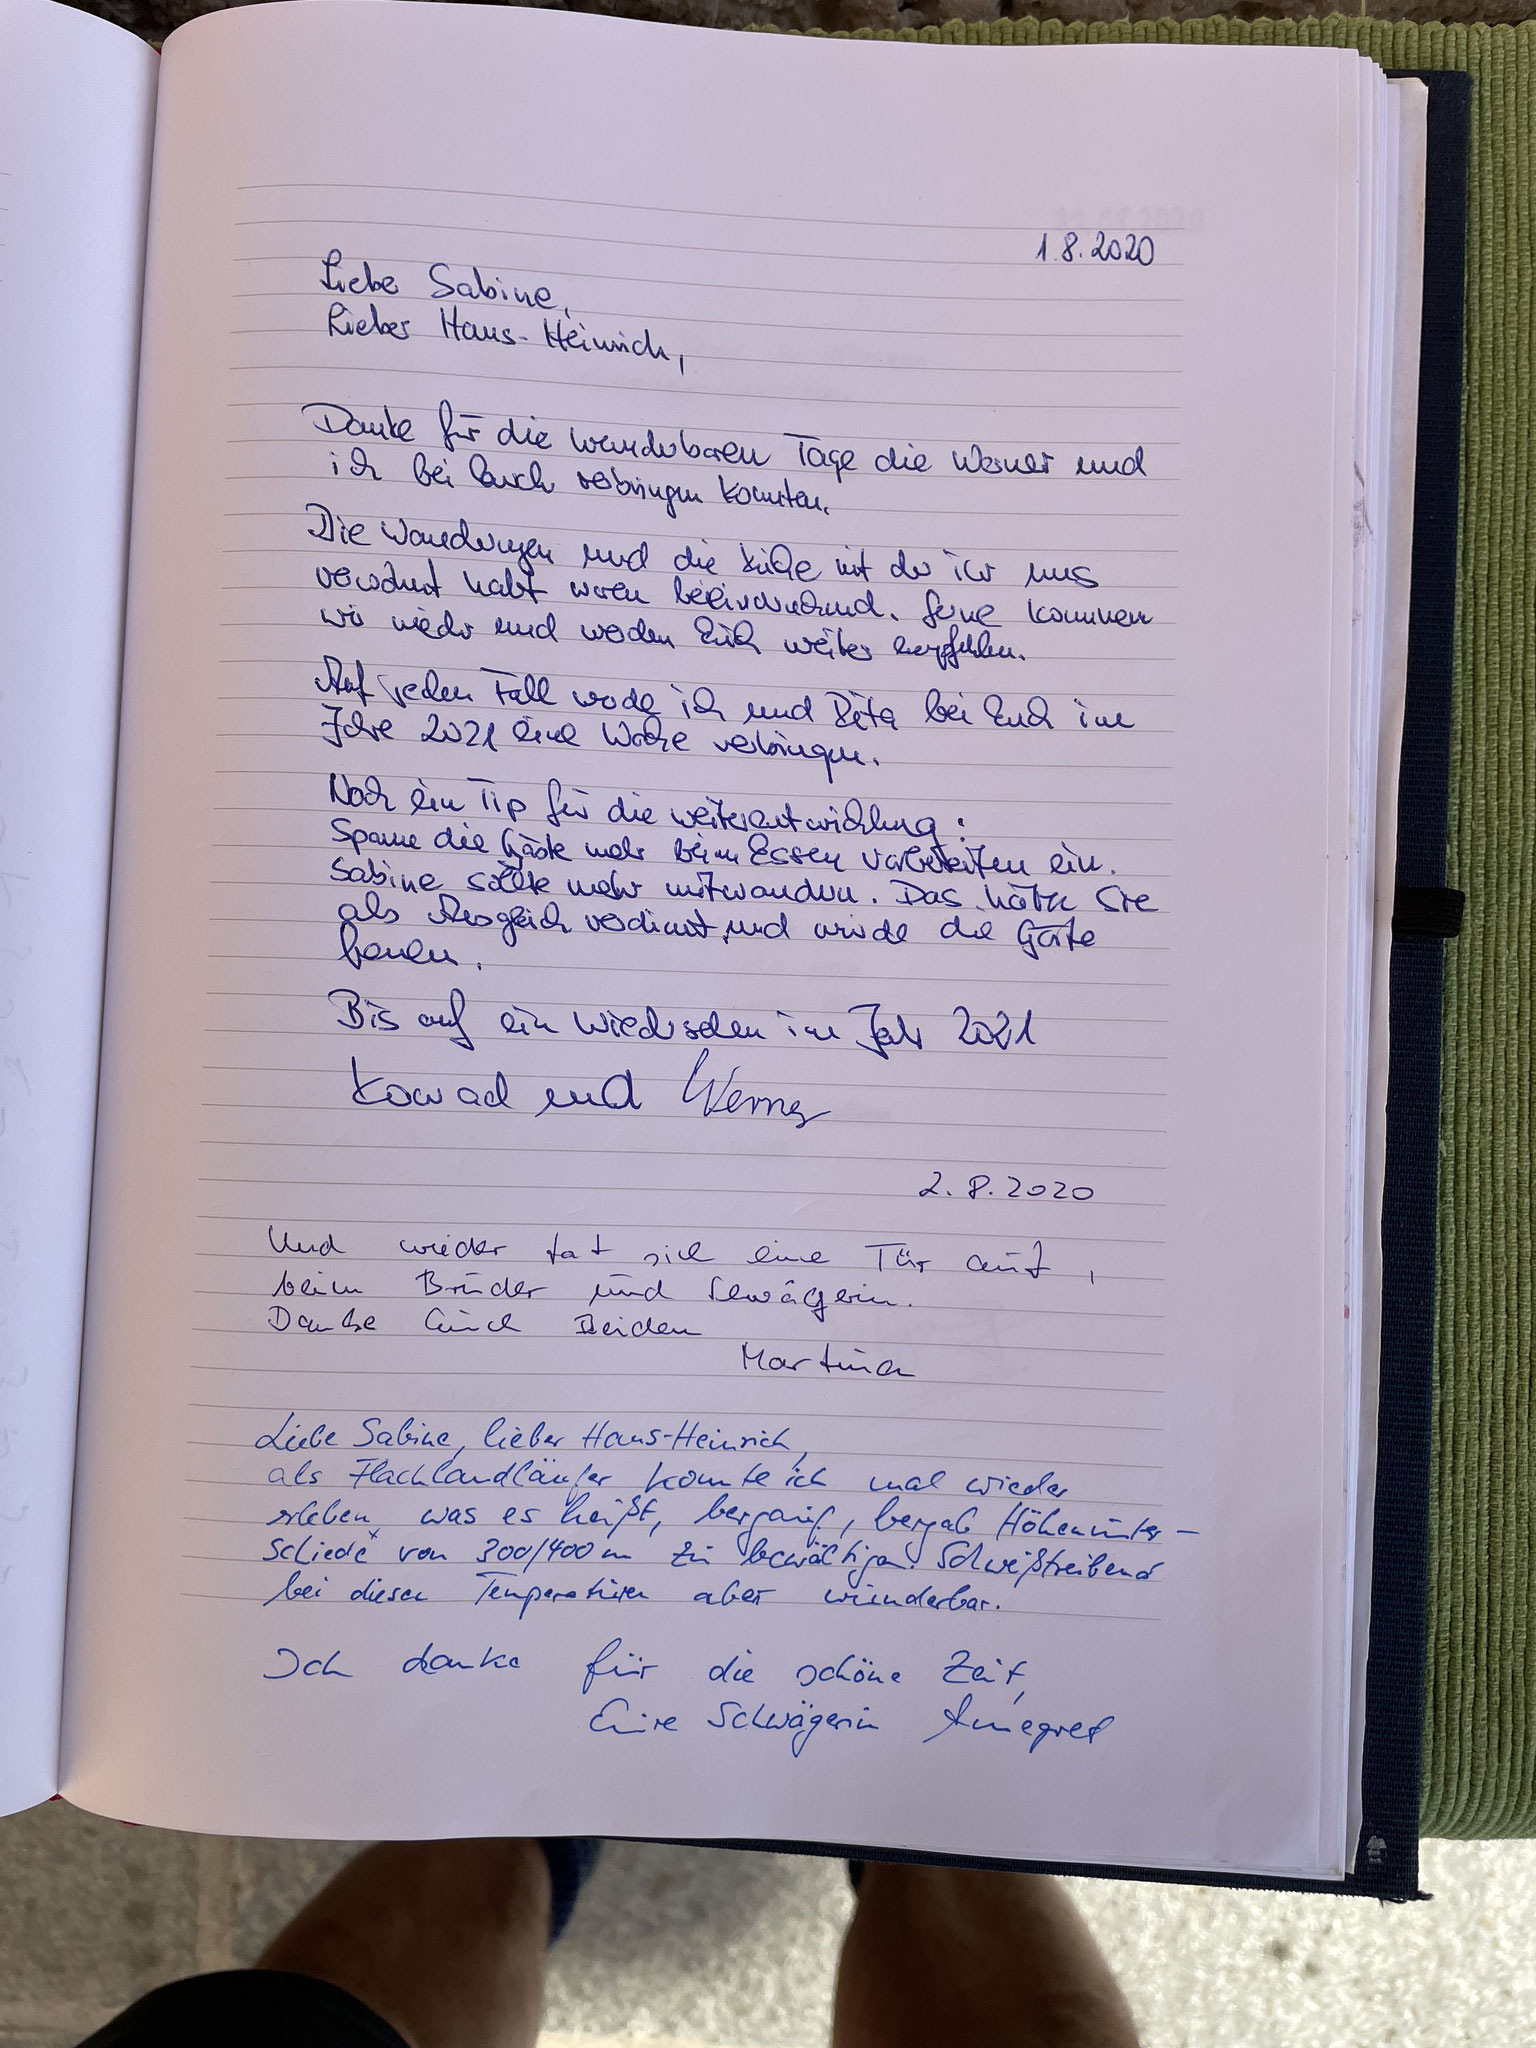 1.8.2020
Liebe Sabine,
Lieber Hans-Heinrich,
Danke für die wunderbaren Tage die Werner und
ich bei Euch verbringen konnten.
Die Wanderungen und die Küche mit der ihr uns
verwöhnt habt waren beeindruckend. Gerne kommen
wir wieder und werden Euch weiter empfehlen.
Auf jeden Fall werde ich und bei Euch im
Jahre 2021 eine Woche verbringen.
Noch ein Tip für die Weiterentwicklung:
Spanne die Gäste mehr beim Essen vorbereiten ein.
Sabine sollte mehr mitwandern. Das hätte Sie
als Ausgleich verdient und würde die Gäste
freuen.
Bis auf ein Wiedersehen im Jahr 2021
Konrad und Werner
2.8.2020
Und wieder tat sich eine Tür auf,
beim Bruder und Schwägerin.
Danke Euch Beiden
Martina
Liebe Sabine, lieber Hans-Heinrich,
als Flachlandläufer konnte ich mal wieder
erleben, was es heißt, bergauf, bergab Höhenunter-
schiede von 300/400m zu bewältigen. Schweißtreibend
bei diesen Temperaturen aber wunderbar.
Ich danke für die schöne Zeit,
Eure Schwägerin Annegret